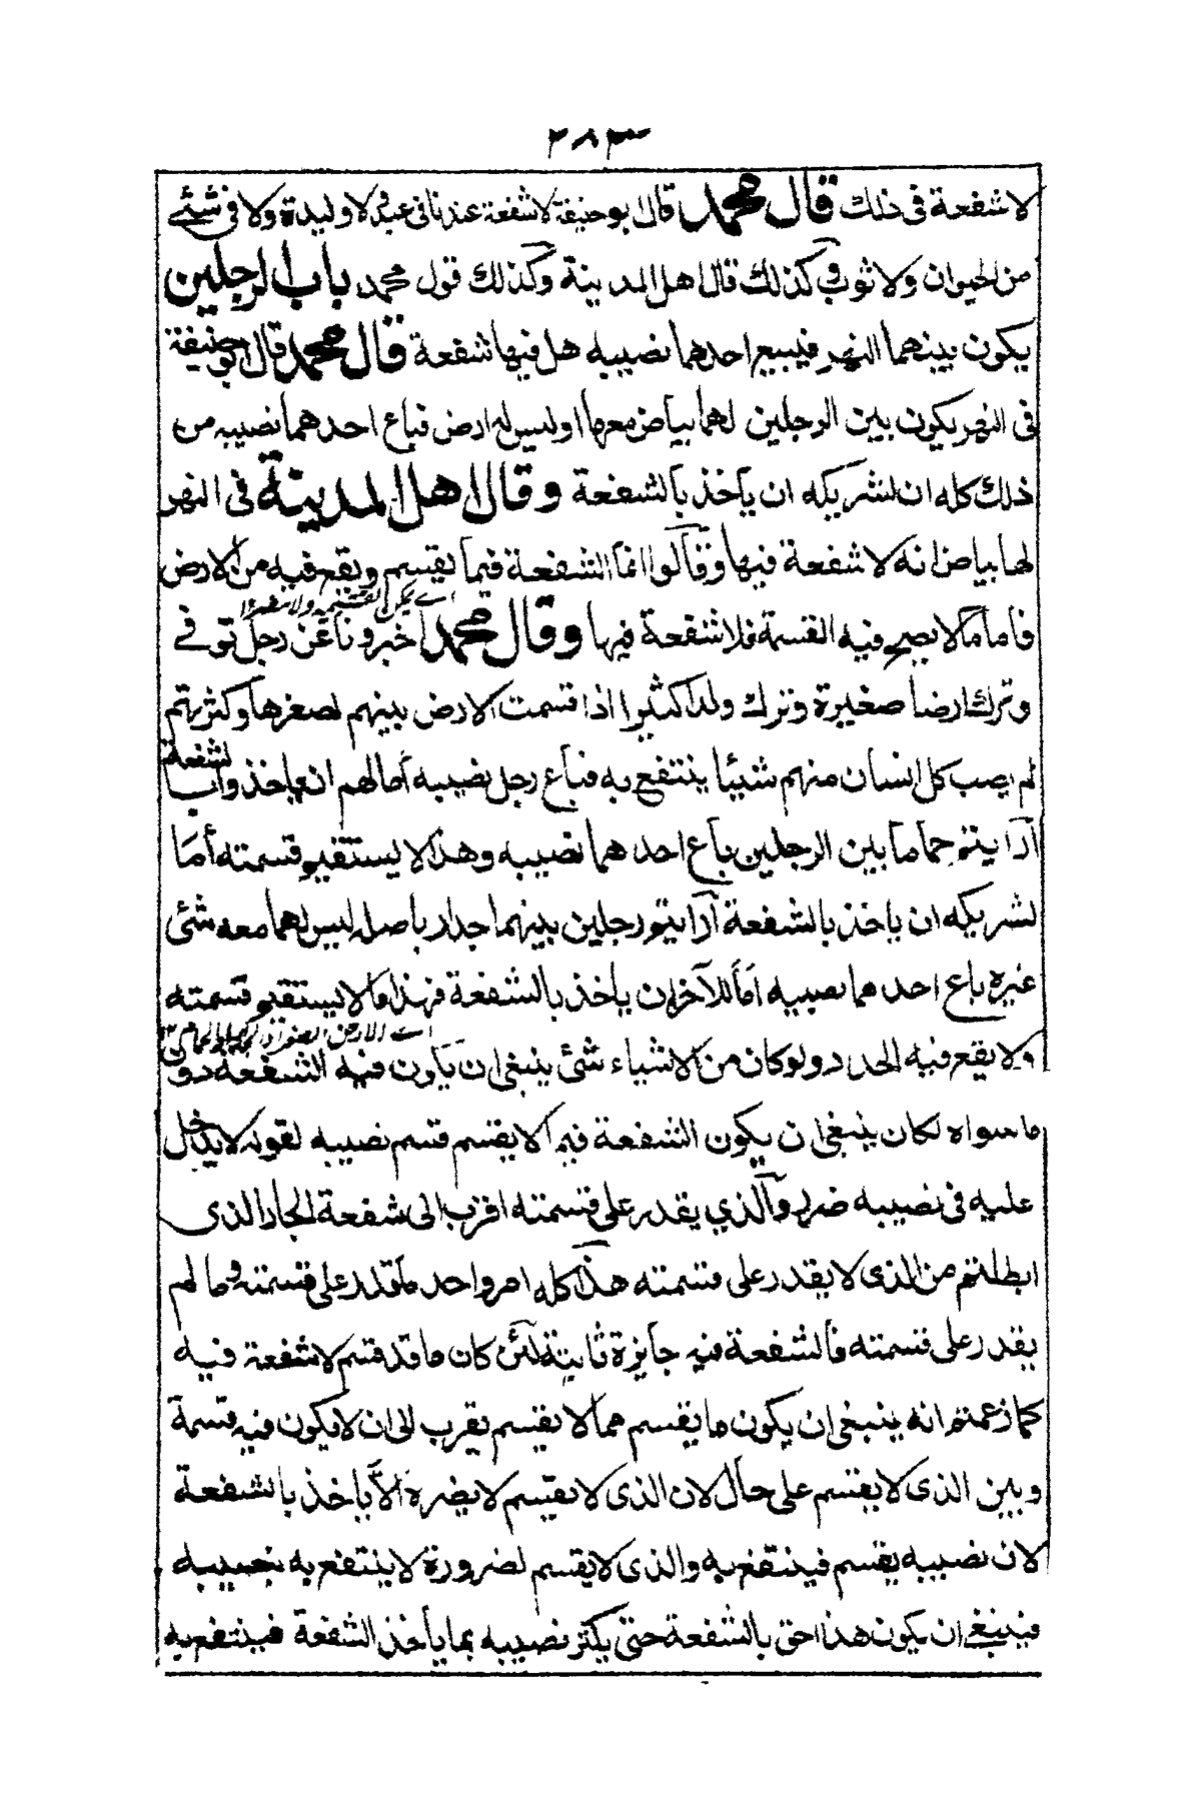 ٢٨٣
لا شفعة فى ذلك قال محمد قال ابو حنيفة لا شفعة عندنا فى عبد ولا وليدة ولا فى شئ
من الحيوان ولا ثوب وكذلك قال اهل المدينة وكذلك قول محمد باب الرجلين
يكون بينهما النهر فيبيع احدهما نصيبه هل فيها شفعة قال محمد قال ابو حنيفة
فى النهر يكون بين الرجلين لهما بياض معها او ليس له ارض فباع احدهما نصيبه من
ذلك كله ان لشريكه ان يأخذ بالشفعة وقال اهل المدينة فى النهر
لها بياض انه لا شفعة فيها وقالوا انما الشفعة فيما يقسم وتقع فيه من الارض
اے يمكن القسمة
فاما ما لا يصح فيه القسمة فلا شفعة فيها وقال محمد اخبرونا عن رجل توفے
وترك ارضا صغيرة وترك ولدا كثيرا اذا قسمت الارض بينهم لصغرها وكثرتهم
لم يصب كل انسان منهم شيئا ينتفع به فباع رجل نصيبه أما لهم ان ياخذوا بالشفعة
أرأيتم حماما بين الرجلين باع احدهما نصيبه وهذا لا يستقيم قسمته أما
لشريكه ان ياخذ بالشفعة أرأيتم رجلين بينهما جدار باصله ليس لهما معه شئ
غيره باع احدهما نصيبه أما للآخر ان ياخذ بالشفعة فهذا ما لا يستقيم قسمته
اے الارض
ولا يقع فيه الحدود ولو كان من الاشياء شئ ينبغى ان يكون فيه الشفعة دون
ما سواه لكان ينبغى ان يكون الشفعة فيما لا يقسم قسم نصيبه لقوله لا يدخل
عليه فى نصيبه ضرر والذي يقدر على قسمته اقرب الى شفعة الجار الذى
ابطلتم من الذى لا يقدر على قسمته هذا كله امر واحد ما قدر على قسمته وما لم
يقدر على قسمته فالشفعة فيه جايزة ثابتة لئن كان ما قد قسم لا شفعة فيه
كما زعمتم انه ينبغى ان يكون ما يقسم مما لا يقسم يقرب الى ان لا يكون فيه قسمة
وبين الذى لا يقسم على حال لان الذى لا يقسم لا يضره الا يأخذ بالشفعة
لان نصيبه يقسم فينتفع به والذى لا يقسم لضرورة لا ينتفع به بنصيبه
فينبغے ان يكون هذا احق بالشفعة حتى يكثر نصيبه بما يأخذ الشفعة فينتفع به